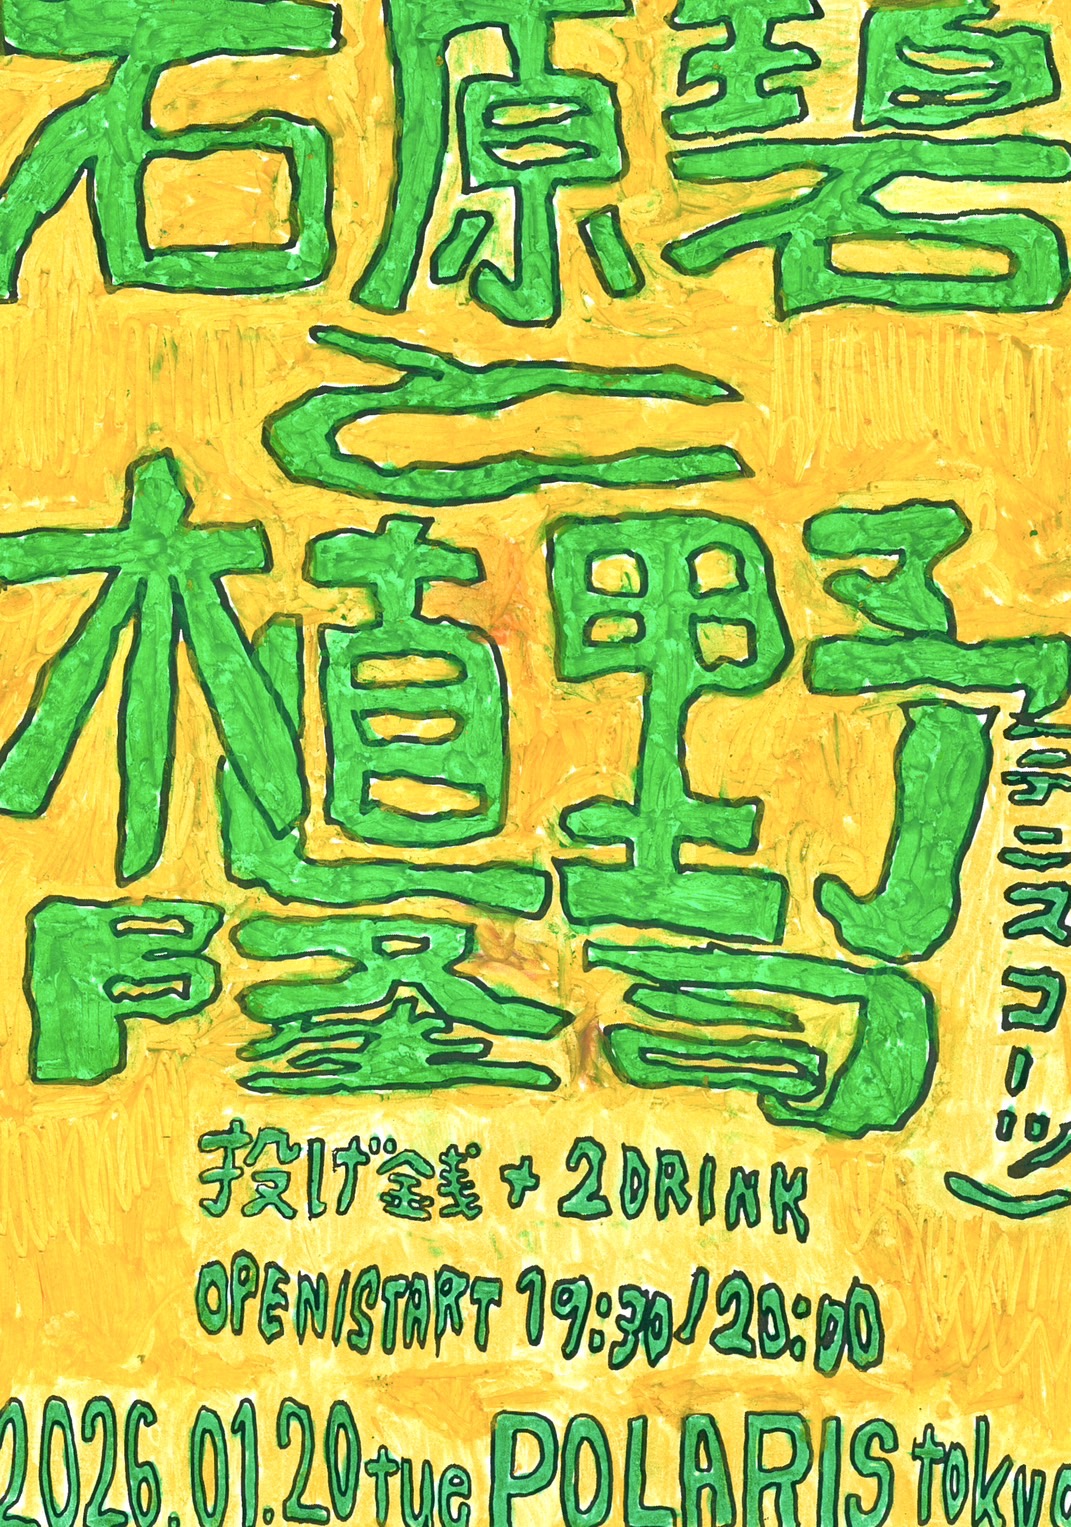 石原碧
と
植野
隆司
(テニスコーツ)
投げ銭+2DRINK
OPEN/START 19:30/20:00
2026.01.20tue POLARIS tokyo